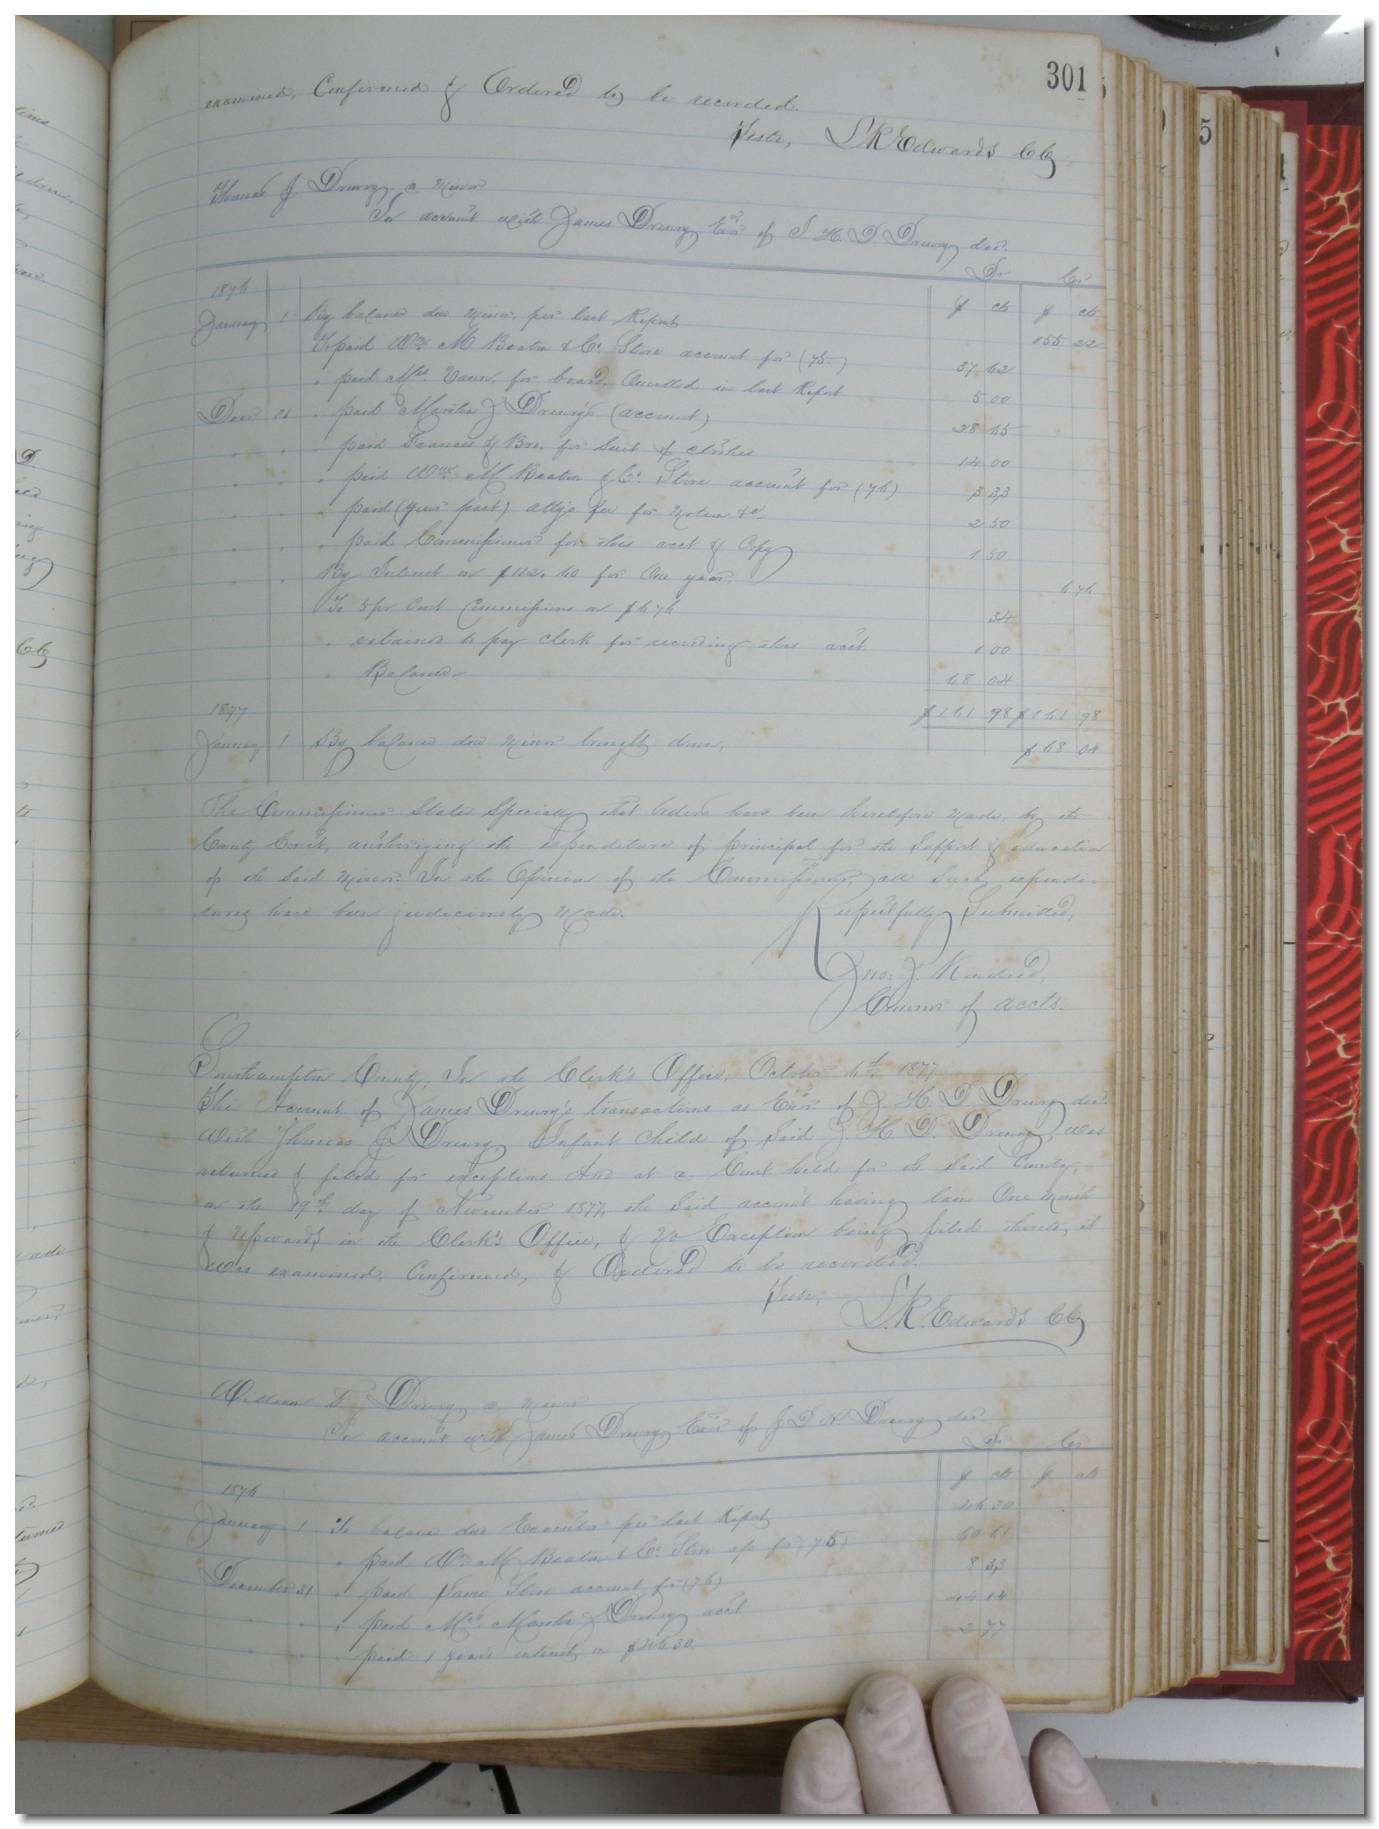 301
examined, Confirmed & Ordered to be recorded.
Teste, L R Edwards CC
Thomas J Drewry, a Minor
In account with James Drewry Exor of J. H. D Drewry dec.
Dr Cr
1876 $ cts $ cts
January 1 By balance due Minor, per last Report 155 22
To paid Wm M Beaton & Co. Store account for (75) 37 62
" paid Mrs. for board, Omitted in last Report 5 00
Dec 31 " paid Martha J Drewry's (account) 28 65
" paid Frances & Bro. for Suit of clothes 14 00
" paid Wm M. Beaton & Co. Store account for (76) 3 33
" paid (your part) atty's fee for Motion &c 2 50
" paid Commissioner for this acct & Copy 1 50
By Interest on $112.60 for One year. 6 76
To 5 pr Cent Commissions on $6 76 34
" retained to pay Clerk for recording this acct 1 00
" Balance 68 04
1877 $161 98 $161 98
January 1 By balance due Minor brought down, $68 04
The Commissioner States Specially that Orders have been heretofore Made, by the
County Court, authorizing the expenditure of principal for the Support & education
of the Said Minor. In the Opinion of the Commissioner, all Such expendi-
tures have been judiciously Made.
Respectfully Submitted,
Jno. J. Kindred,
Commr of accts.
Southampton County. In the Clerk's Office, October 6th 1877
The Account of James Drewry's transactions as Exor. of J. H D Drewry dec.
With Thomas J Drewry Infant Child of Said J H D. Drewry, was
returned & filed for exceptions. And at a Court held for the Said County,
on the 19th day of November 1877, the Said account having lain One Month
& Upwards in the Clerk's Office, & No Exception being filed thereto, it
Was examined, Confirmed, & Ordered to be recorded.
Teste,
L. R. Edwards CC
William Drewry, a Minor
In account with James Drewry Exor of J D H Drewry dec
Dr Cr
1876 $ cts $ cts
January 1 To balance due Executor per last Report 46 30
" paid Wm. M Beaton & Co Store a/c for (75) 60 61
December 31 " paid Same Store account for (76) 8 33
" paid Mrs Martha J Drewry acct 44 14
" paid 1 year's interest, on $46 30 2 77